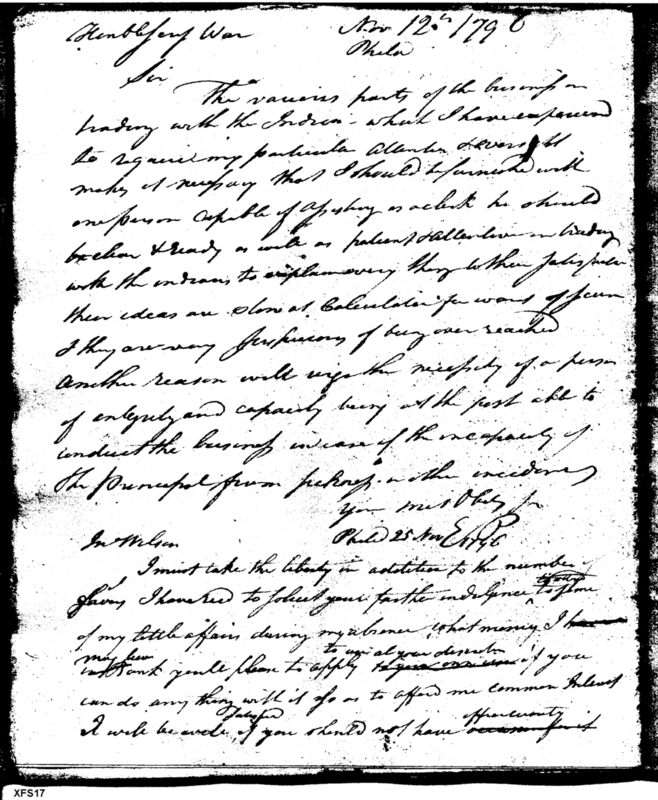 Honble Secy War
Nov 12th 1796
Philad
Sir
The various parts of the business in
trading with the Indian - which I have experienced
to require my particular attention & oversight
makes it necessary that I should be furnished with
one person capable of assisting as a clerk he should
be clear & ready as well as patient & attentive in trading
with the indians to explain every thing to their satisfaction
their ideas are slow at Calculation for want of
& they are very suspicious of being over reached
Another reason will urge the necessity of a person
of integrity and capacity being at the post able to
conduct the business in case of the incapacity of
the Principal from sickness or other incidents
Your most Obdt
EP
Jno Wilson
Philad 25 Nov 1796
I must take the liberty in addition to the number of
favors I have recd to solicit your farther indulgence to some
of my little affairs during my absence, what money I have
may have to use at your discretion
in Bank you'll please to apply if you
can do any thing with it so as to afford me common Interest
I will be well satisfied if you should not have opportunity
XFS17